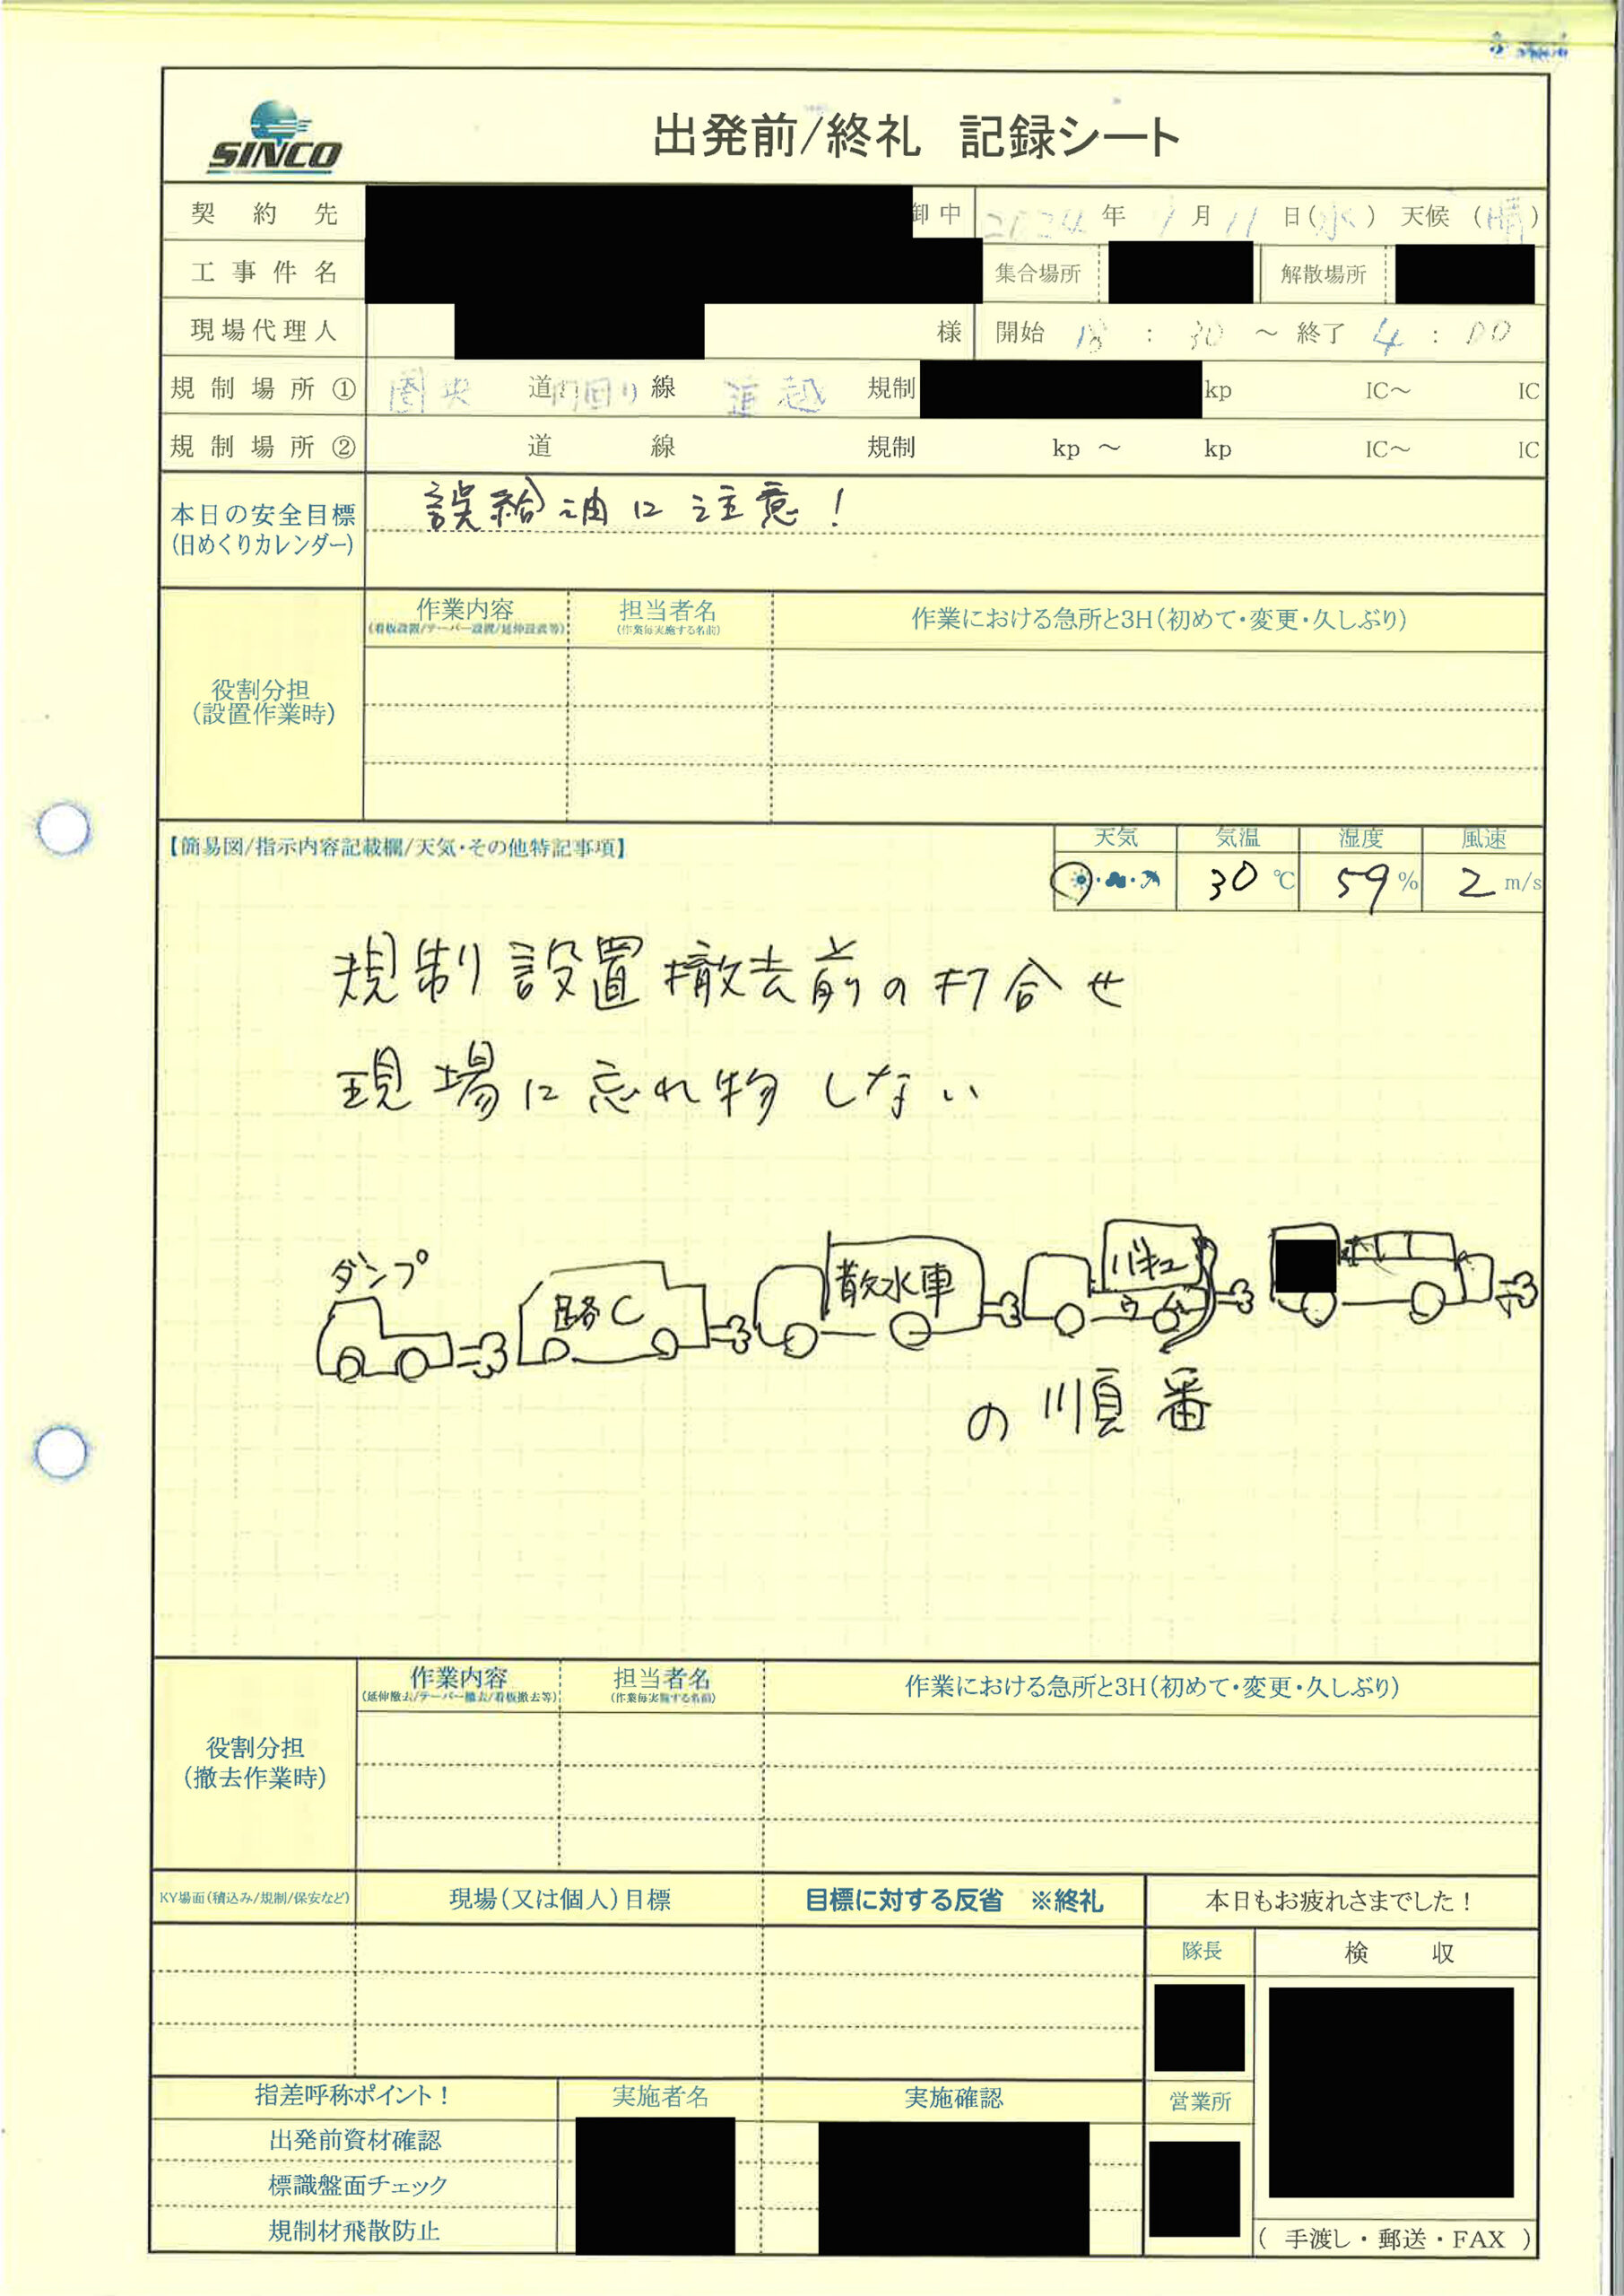 SINCO
出発前/終礼 記録シート
契約先 御中 2024年 月11日(水) 天候(晴)
工事件名 集合場所 解散場所
現場代理人 様 開始 18:30 ～ 終了 4:00
規制場所① 圏央道 内回り線 追越 規制 kp IC～ IC
規制場所② 道 線 規制 kp ～ kp IC～ IC
本日の安全目標 誤給油に注意!
(日めくりカレンダー)
作業内容 担当者名 作業における急所と3H(初めて・変更・久しぶり)
(看板設置/テーパー設置/延伸設置等) (作業毎実施する名前)
役割分担
(設置作業時)
【簡易図/指示内容記載欄/天気・その他特記事項】
天気 気温 湿度 風速
30℃ 59% 2m/s
規制設置撤去前の打合せ
現場に忘れ物しない
ダンプ 路C 散水車 バキュ
の順番
作業内容 担当者名 作業における急所と3H(初めて・変更・久しぶり)
(延伸撤去/テーパー撤去/看板撤去等) (作業毎実施する名前)
役割分担
(撤去作業時)
KY場面(積込み/規制/保安など) 現場(又は個人)目標 目標に対する反省 ※終礼 本日もお疲れさまでした!
隊長 検収
指差呼称ポイント! 実施者名 実施確認 営業所
出発前資材確認
標識盤面チェック
規制材飛散防止
(手渡し・郵送・FAX)